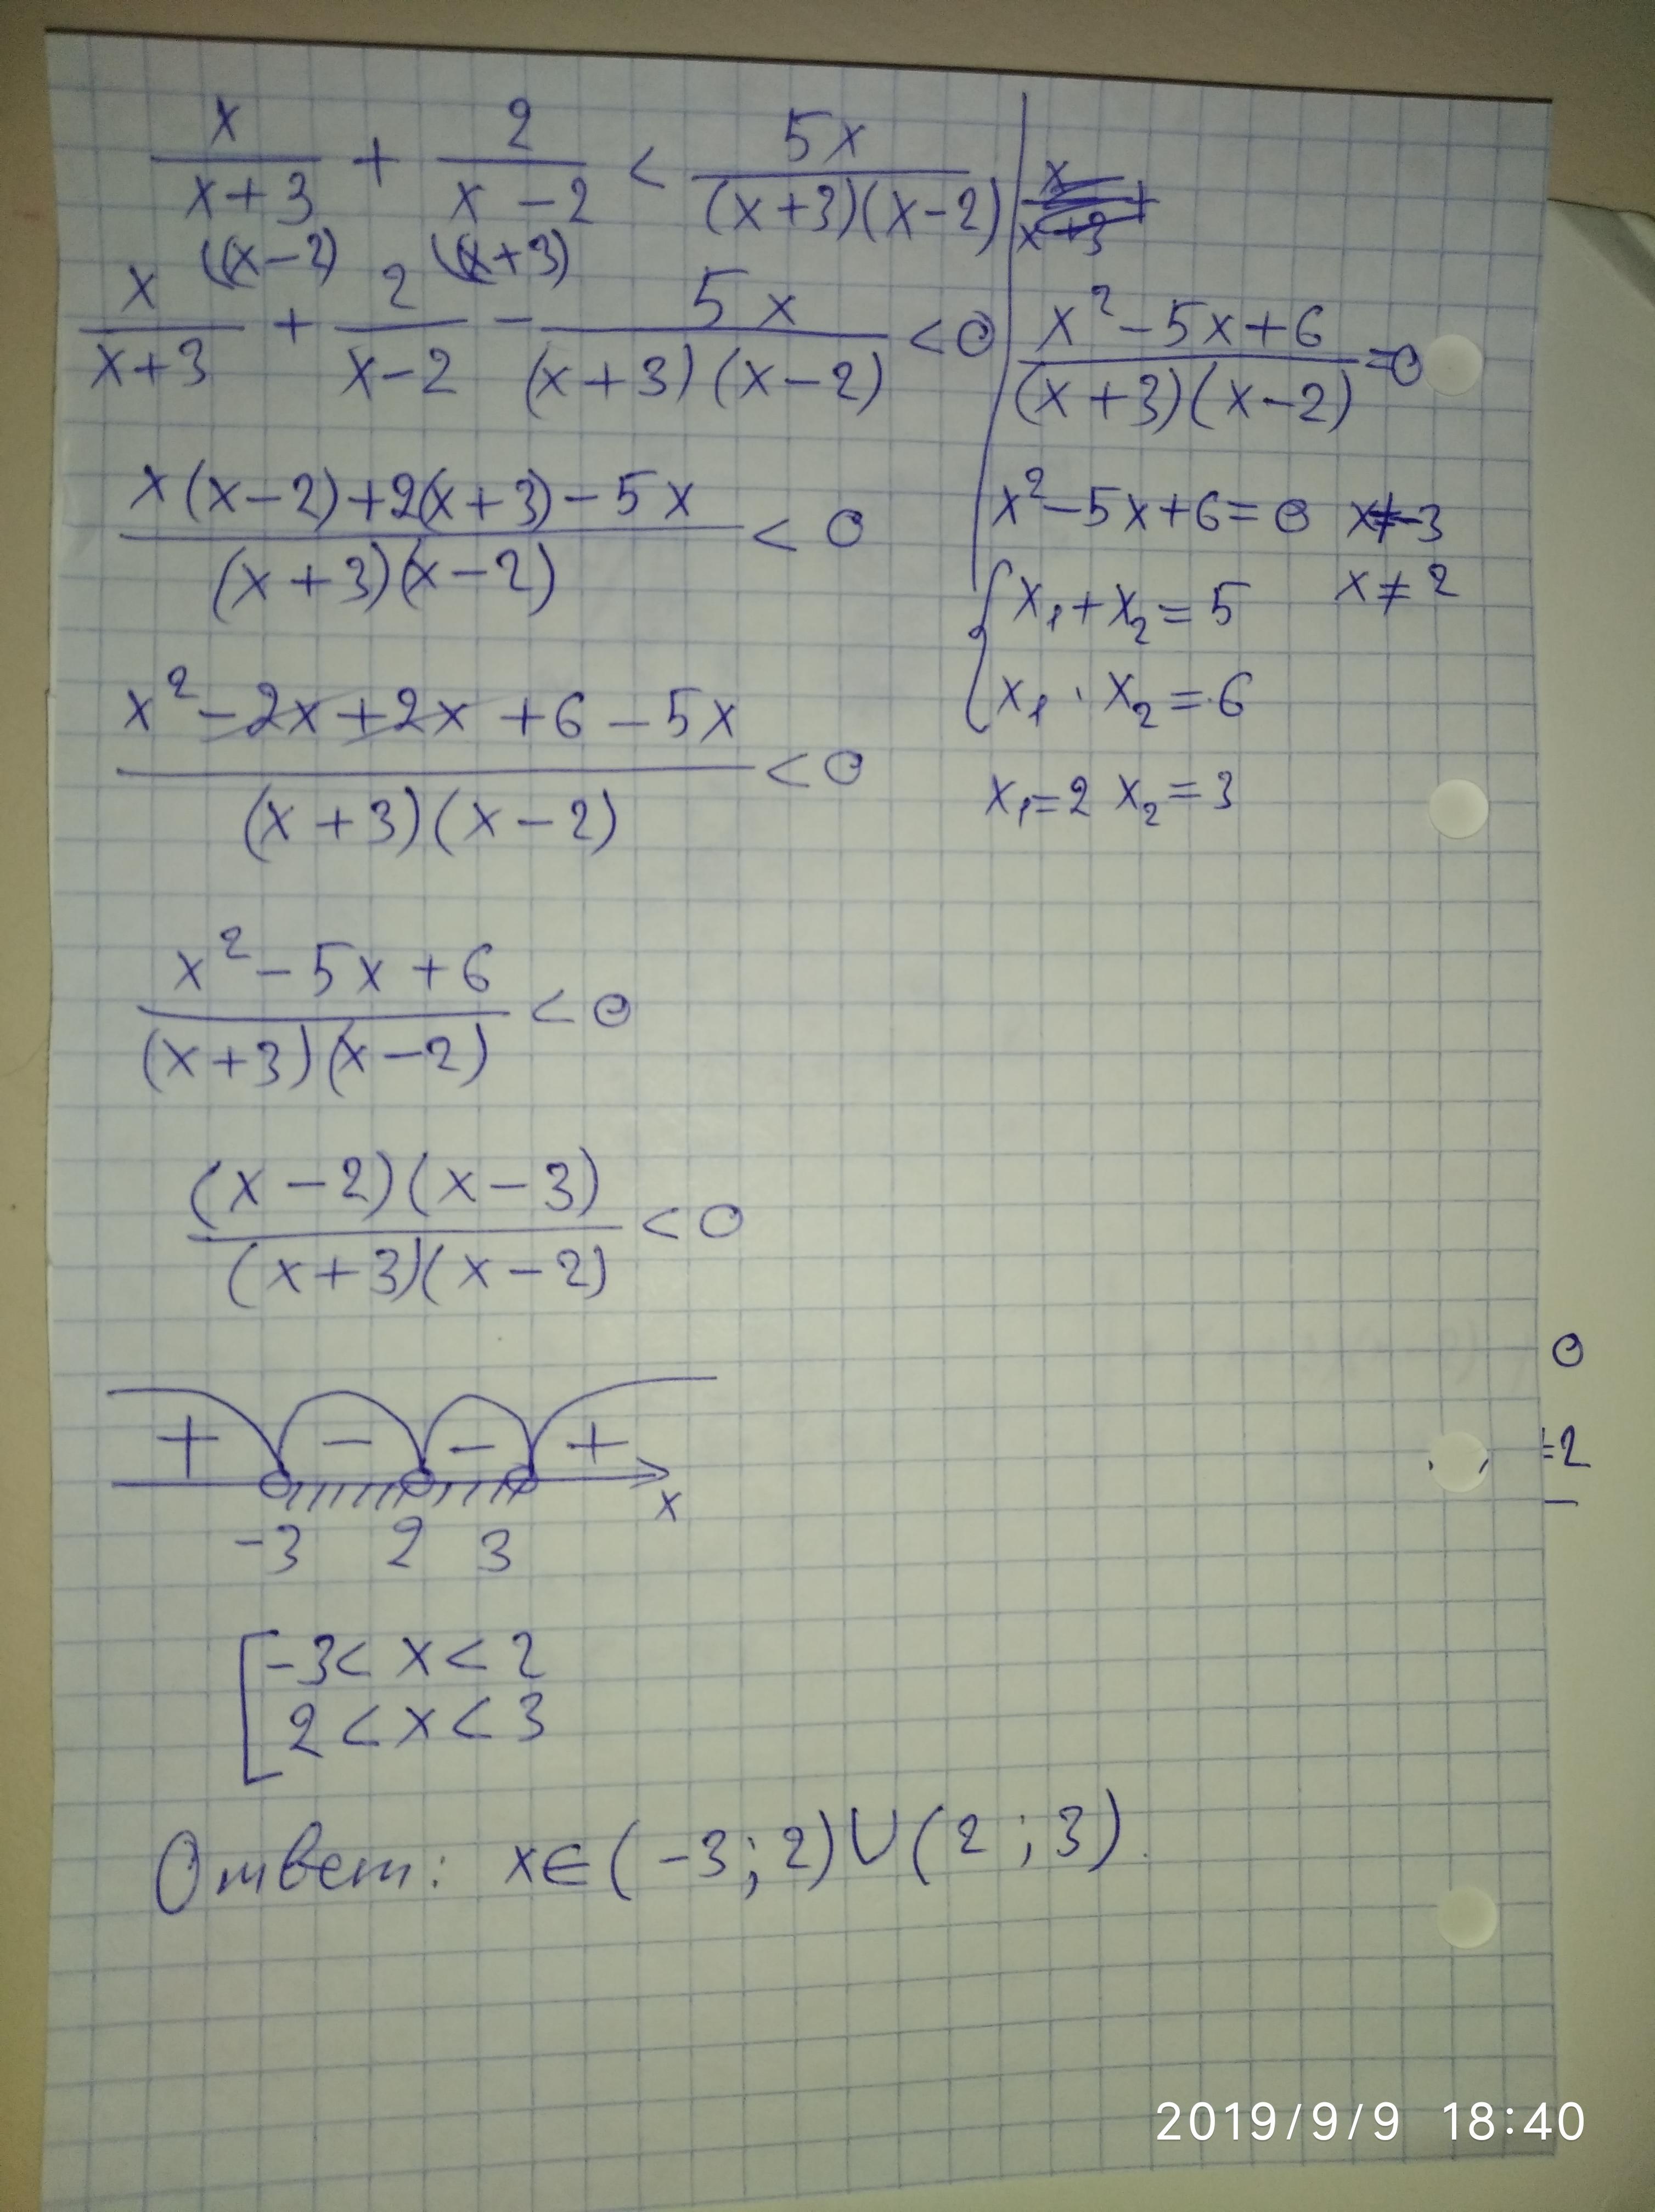 x/(x+3) + 2/(x-2) < 5x/((x+3)(x-2))
x/(x+3) ((x-2) + 2/(x-2) ((x+3) - 5x/((x+3)(x-2)) < 0
(x(x-2)+2(x+3)-5x)/((x+3)(x-2)) < 0
(x²-2x+2x+6-5x)/((x+3)(x-2)) < 0
(x²-5x+6)/((x+3)(x-2)) < 0
((x-2)(x-3))/((x+3)(x-2)) < 0
+ - - +
-3 2 3 x
[-3 < x < 2
2 < x < 3
Ответ: x∈(-3; 2)∪(2; 3).
x/(x+3) +
(x²-5x+6)/((x+3)(x-2)) = 0
x²-5x+6=0 x≠-3
x≠2
{x₁+x₂=5
x₁·x₂=6
x₁=2 x₂=3
0
=2
2019/9/9 18:40